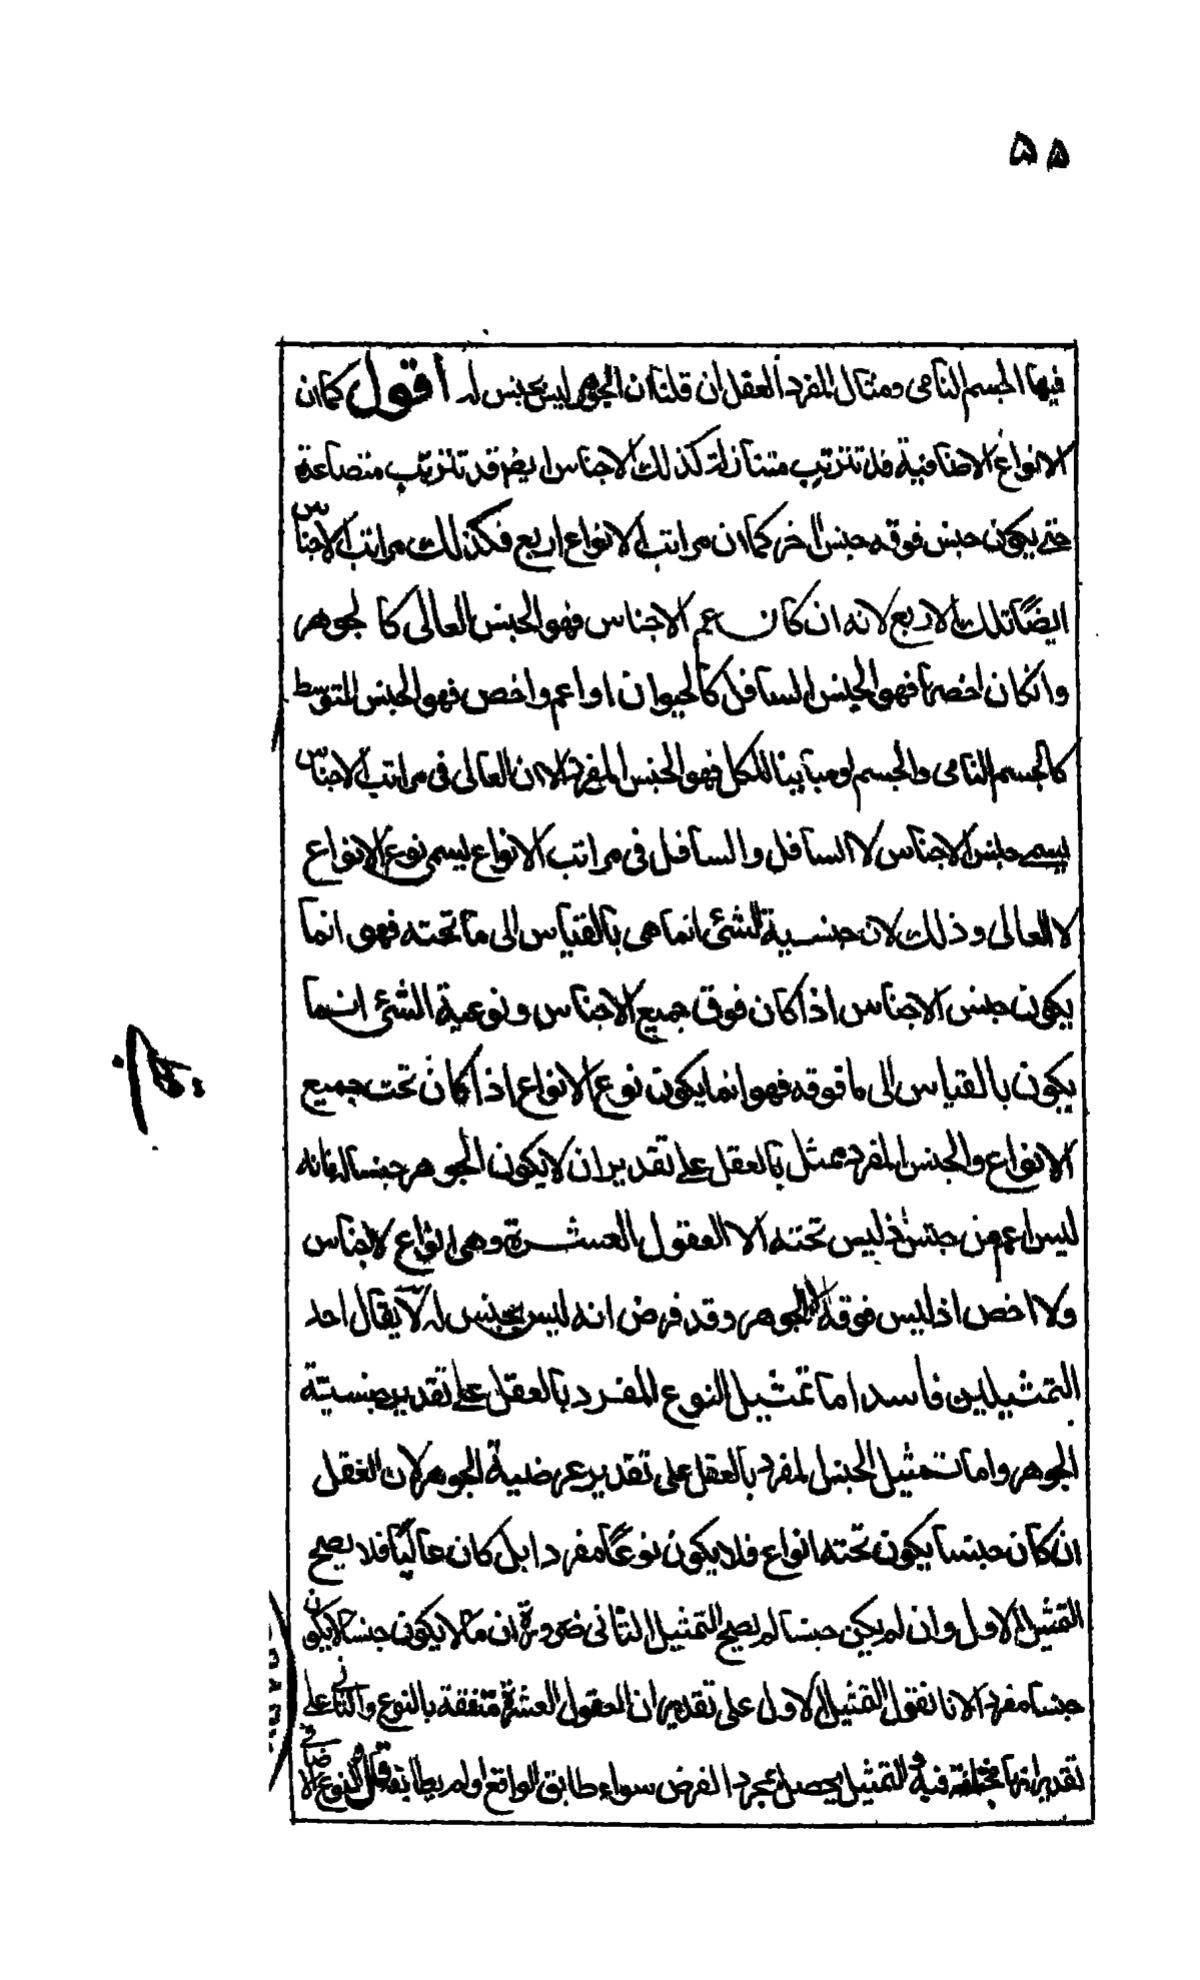 ۵۵
فيها الجسم النامى ومثال المفرد العقل ان قلنا ان الجوهر ليس بجنس له أقول كما ان
الانواع الاضافية قد تترتب متنازلة كذلك الاجناس ايضا قد تترتب متصاعدة
حتى يكون جنس فوقه جنس اٰخر كما ان مراتب الانواع اربع فكذلك مراتب الاجناس
ايضًا تلك الاربع لانه ان كان اعم الاجناس فهو الجنس العالى كالجوهر
وانكان اخصها فهو الجنس السافل كالحيوان او اعم واخص فهو الجنس المتوسط
كالجسم النامى والجسم او مباينا للكل فهو الجنس المفرد الا ان العالى فى مراتب الاجناس
يسمى جنس الاجناس لا السافل والسافل فى مراتب الانواع يسمى نوع الانواع
لا العالى وذلك لان جنسية الشئ انما هى بالقياس الى ما تحته فهو انما
يكون جنس الاجناس اذا كان فوق جميع الاجناس ونوعية الشئ انما
يكون بالقياس الى ما فوقه فهو انما يكون نوع الانواع اذا كان تحت جميع
الانواع والجنس المفرد ممثل بالعقل على تقدير ان لا يكون الجوهر جنسا له فانه
ليس اعم من جنس اذ ليس تحته الا العقول العشرة وهى انواع لا اجناس
ولا اخص اذ ليس فوقه الا الجوهر وقد فرض انه ليس بجنس له لا يقال احد
التمثيلين فاسد اما تمثيل النوع المفرد بالعقل على تقدير جنسية
الجوهر واما تمثيل الجنس المفرد بالعقل على تقدير عرضية الجوهر لان العقل
ان كان جنسا يكون تحته انواع فلا يكون نوعًا مفردا بل كان عاليًا فلا يصح
التمثيل الاول وان لم يكن جنسا لم يصح التمثيل الثانى ضرورة ان ما لا يكون جنسا لا يكون
جنسا مفردا لانا نقول التمثيل الاول على تقدير ان العقول العشرة متفقة بالنوع والثانى على
تقدير انها مختلفة فيه والتمثيل يحصل بمجرد الفرض سواء طابق الواقع او لم يطابقه قال النوع الاضافى